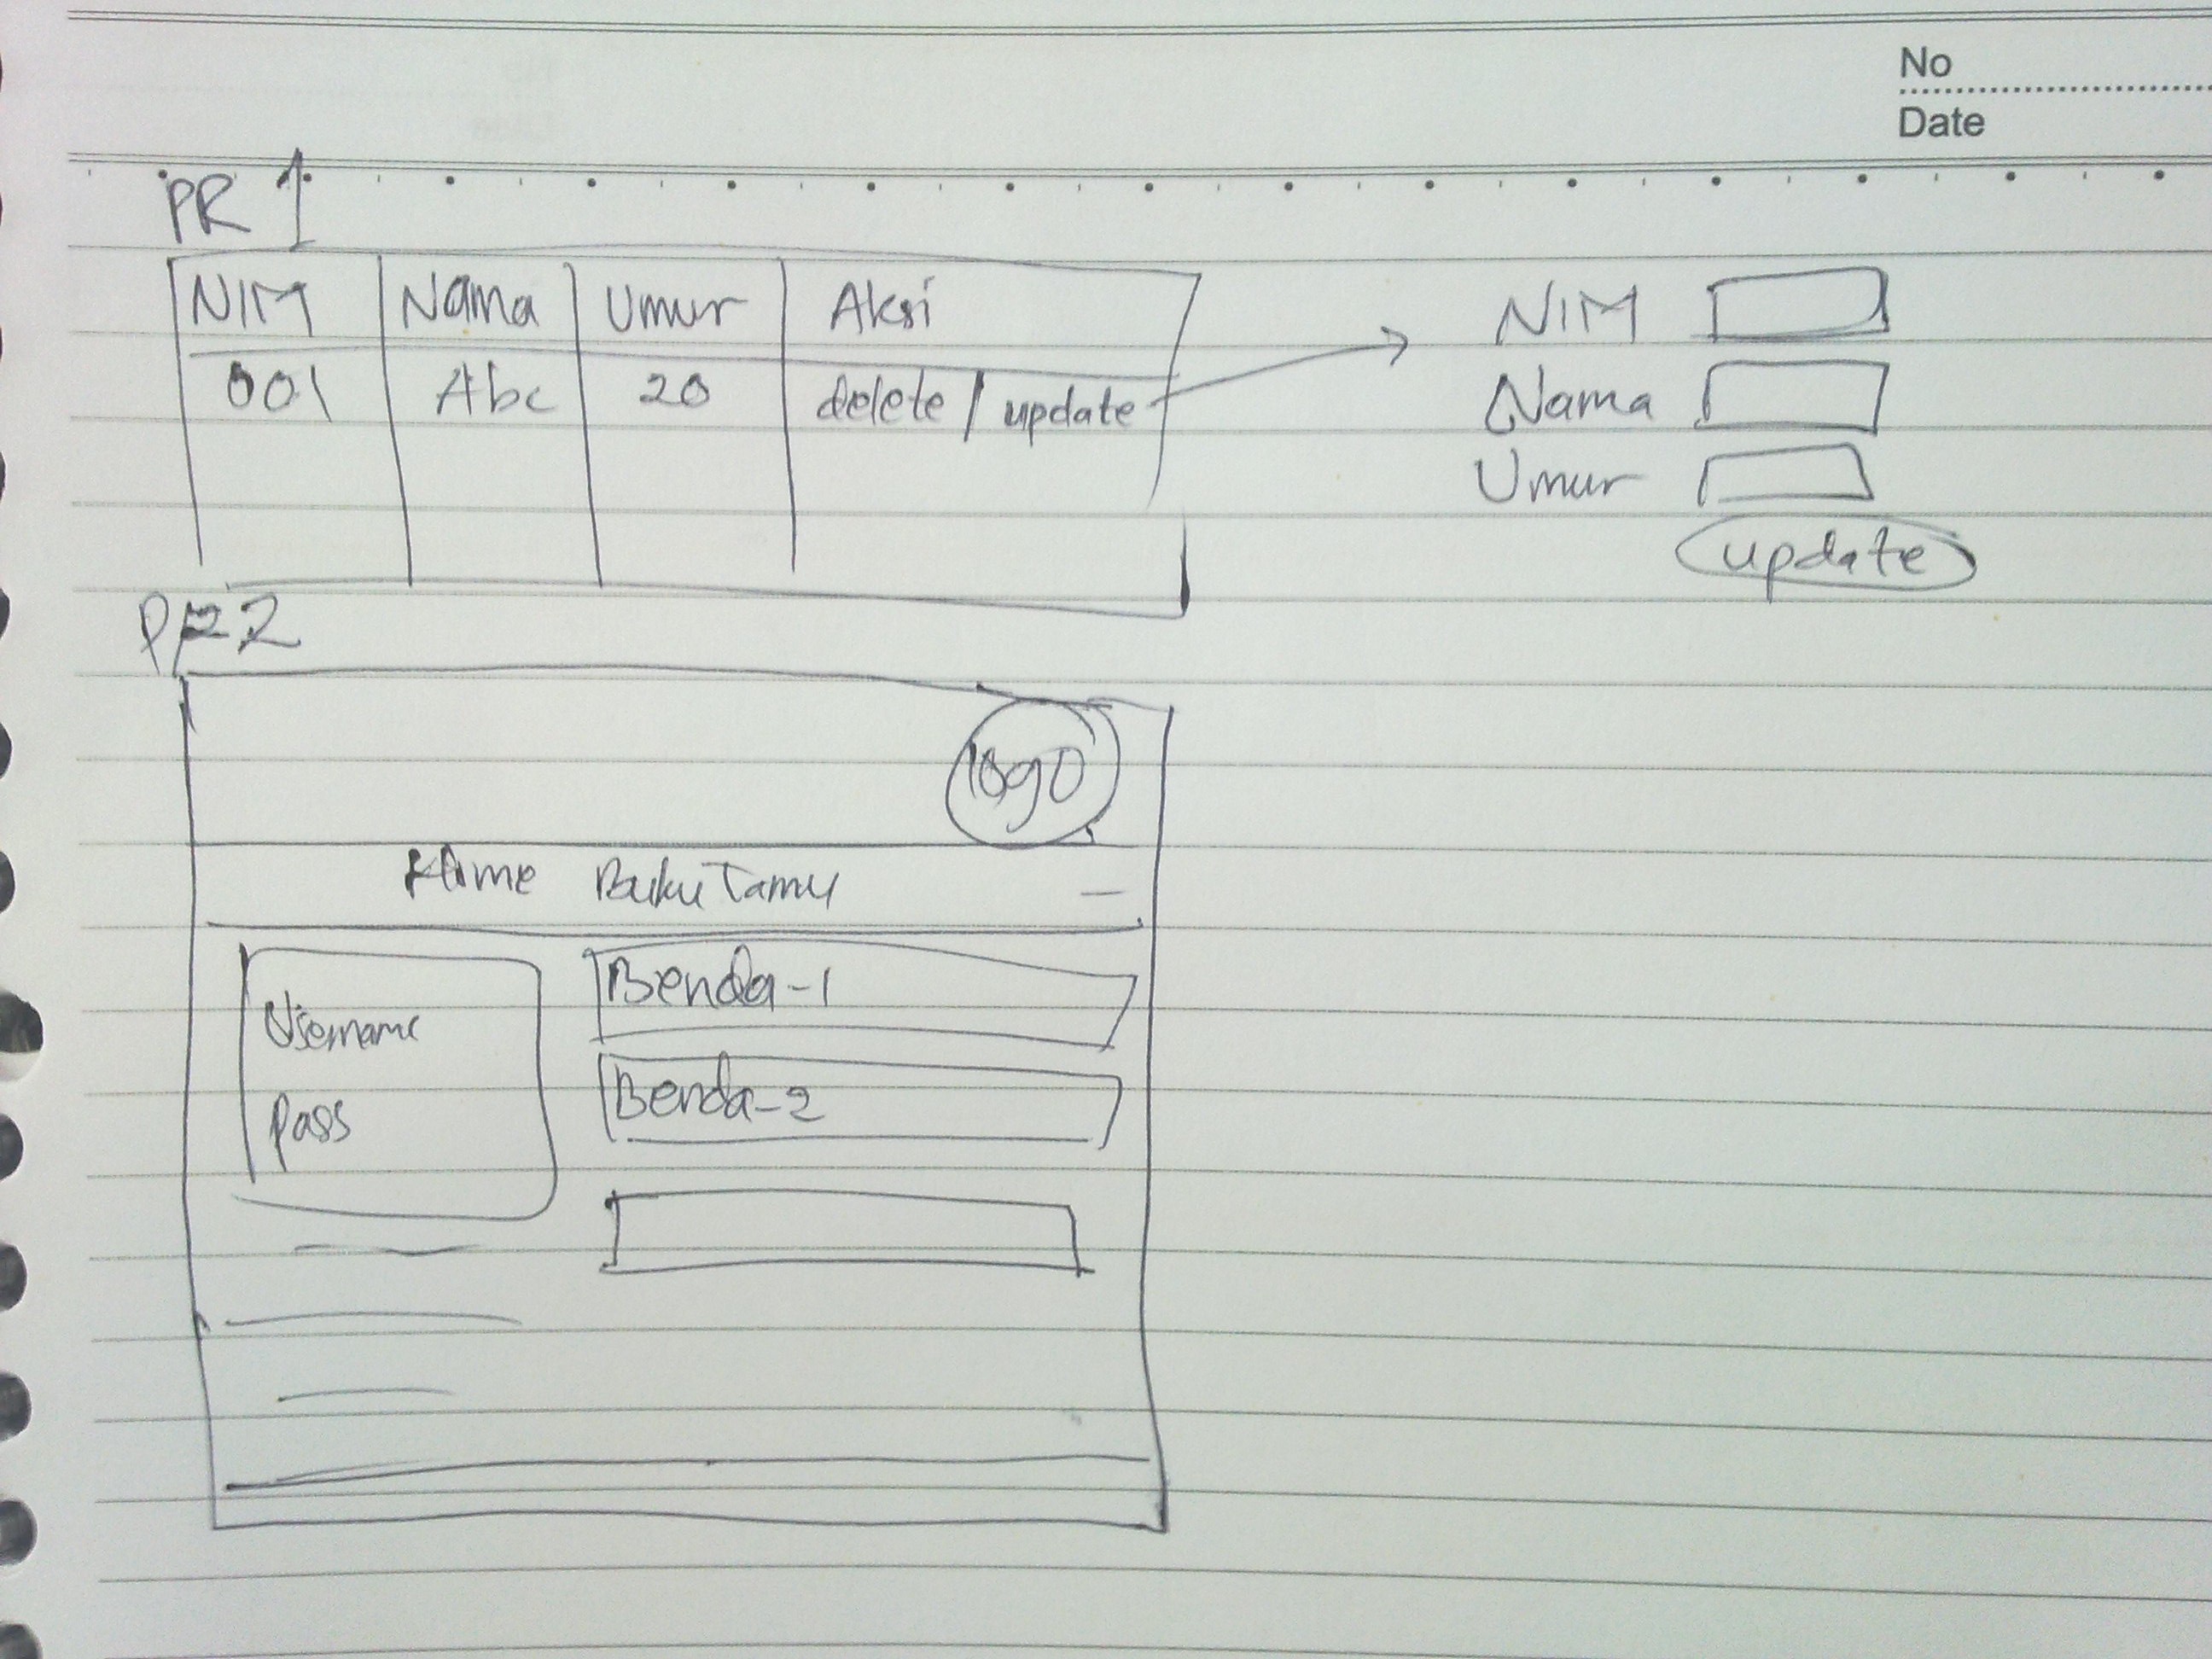 No
Date
PR 1
NIM Nama Umur Aksi
001 Abc 20 delete / update
NIM
Nama
Umur
update
PR 2
logo
Home Buku Tamu
Username
Pass
Benda-1
Benda-2